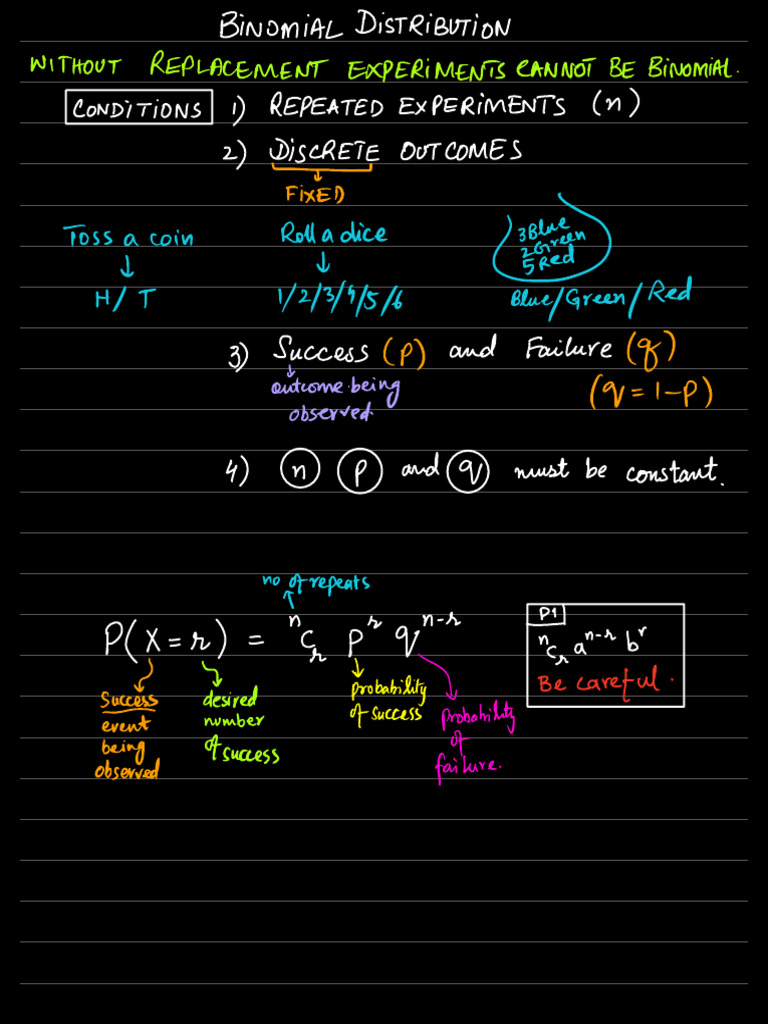 BINOMIAL DISTRIBUTION
WITHOUT REPLACEMENT EXPERIMENTS CANNOT BE BINOMIAL.
CONDITIONS 1) REPEATED EXPERIMENTS (n)
2) DISCRETE OUTCOMES
↓
FIXED
Toss a coin
↓
H/ T
Roll a dice
↓
1/2/3/4/5/6
3 Blue
2 Green
5 Red
Blue/Green/Red
3) Success (p) and Failure (q)
↓
outcome being
observed.
(q = 1-p)
4) n p and q must be constant.
no of repeats
P(X = r) = ⁿCᵣ pʳ qⁿ⁻ʳ
Success
event
being
observed
desired
number
of success
probability
of success
probability
of
failure.
P1
ⁿCᵣ aⁿ⁻ʳ bʳ
Be careful.